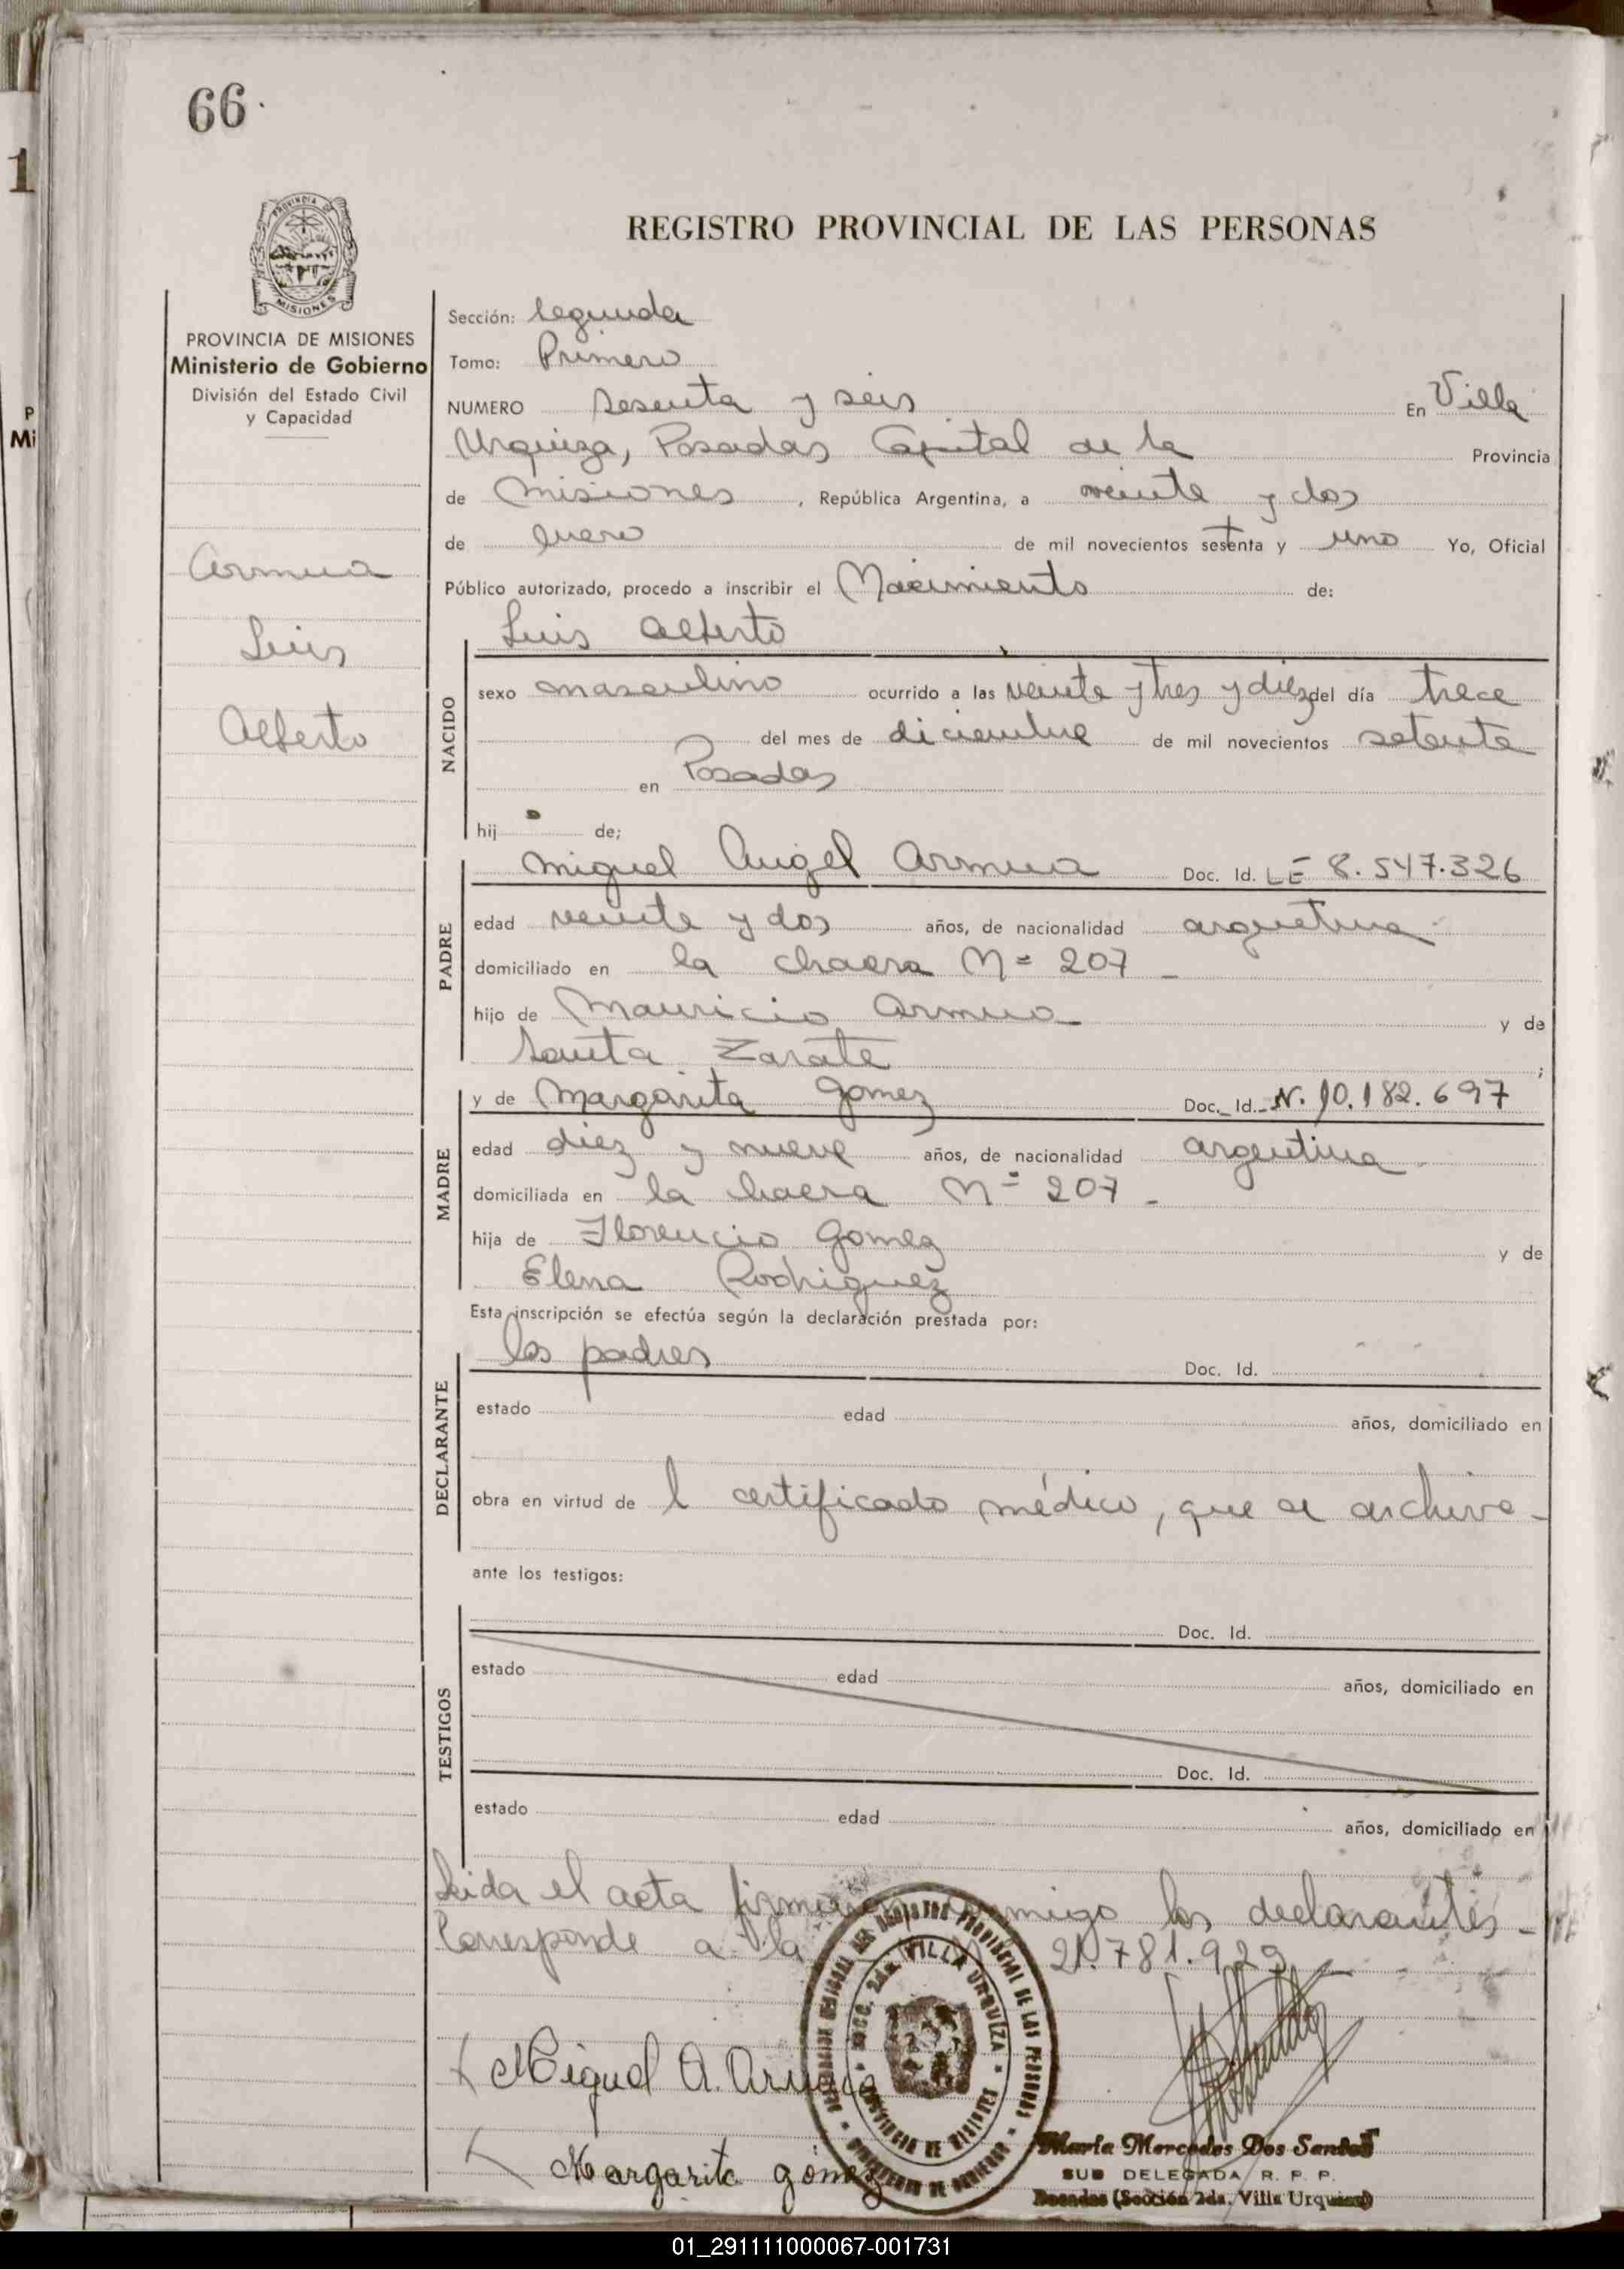 66.
REGISTRO PROVINCIAL DE LAS PERSONAS
PROVINCIA DE MISIONES
PROVINCIA DE MISIONES
Ministerio de Gobierno
División del Estado Civil
y Capacidad
Armua
Luis
Alberto
Sección: Segunda
Tomo: Primero
NUMERO sesenta y seis En Villa
Urquiza, Posadas Capital de la Provincia
de Misiones, República Argentina, a veinte y dos
de Enero de mil novecientos setenta y uno Yo, Oficial
Público autorizado, procedo a inscribir el Nacimiento de:
Luis Alberto
NACIDO
sexo masculino ocurrido a las veinte y tres y diez del día trece
del mes de diciembre de mil novecientos setenta
en Posadas
hijo de;
PADRE
Miguel Angel Armua Doc. Id. LE 8.547.326
edad veinte y dos años, de nacionalidad argentina
domiciliado en la chacra Nº 207 -
hijo de Mauricio Armua y de
Santa Zarate ;
MADRE
y de Margarita Gomez Doc. Id. N. 10.182.697
edad diez y nueve años, de nacionalidad argentina
domiciliada en la chacra Nº 207 -
hija de Florencio Gomez y de
Elena Rodriguez
Esta inscripción se efectúa según la declaración prestada por:
DECLARANTE
los padres Doc. Id.
estado edad años, domiciliado en
obra en virtud de l certificado médico, que se archiva -
ante los testigos:
TESTIGOS
Doc. Id.
estado edad años, domiciliado en
Doc. Id.
estado edad años, domiciliado en
Leida el acta firman conmigo los declarantes -
Corresponde a la 21.781.929
SECC. 2da. VILLA URQUIZA
PROVINCIA DE MISIONES
Miguel A. Armua
Margarita gómez
María Mercedes Dos Santos
SUB DELEGADA R. P. P.
Posadas (Sección 2da. Villa Urquiza)
01_291111000067-001731